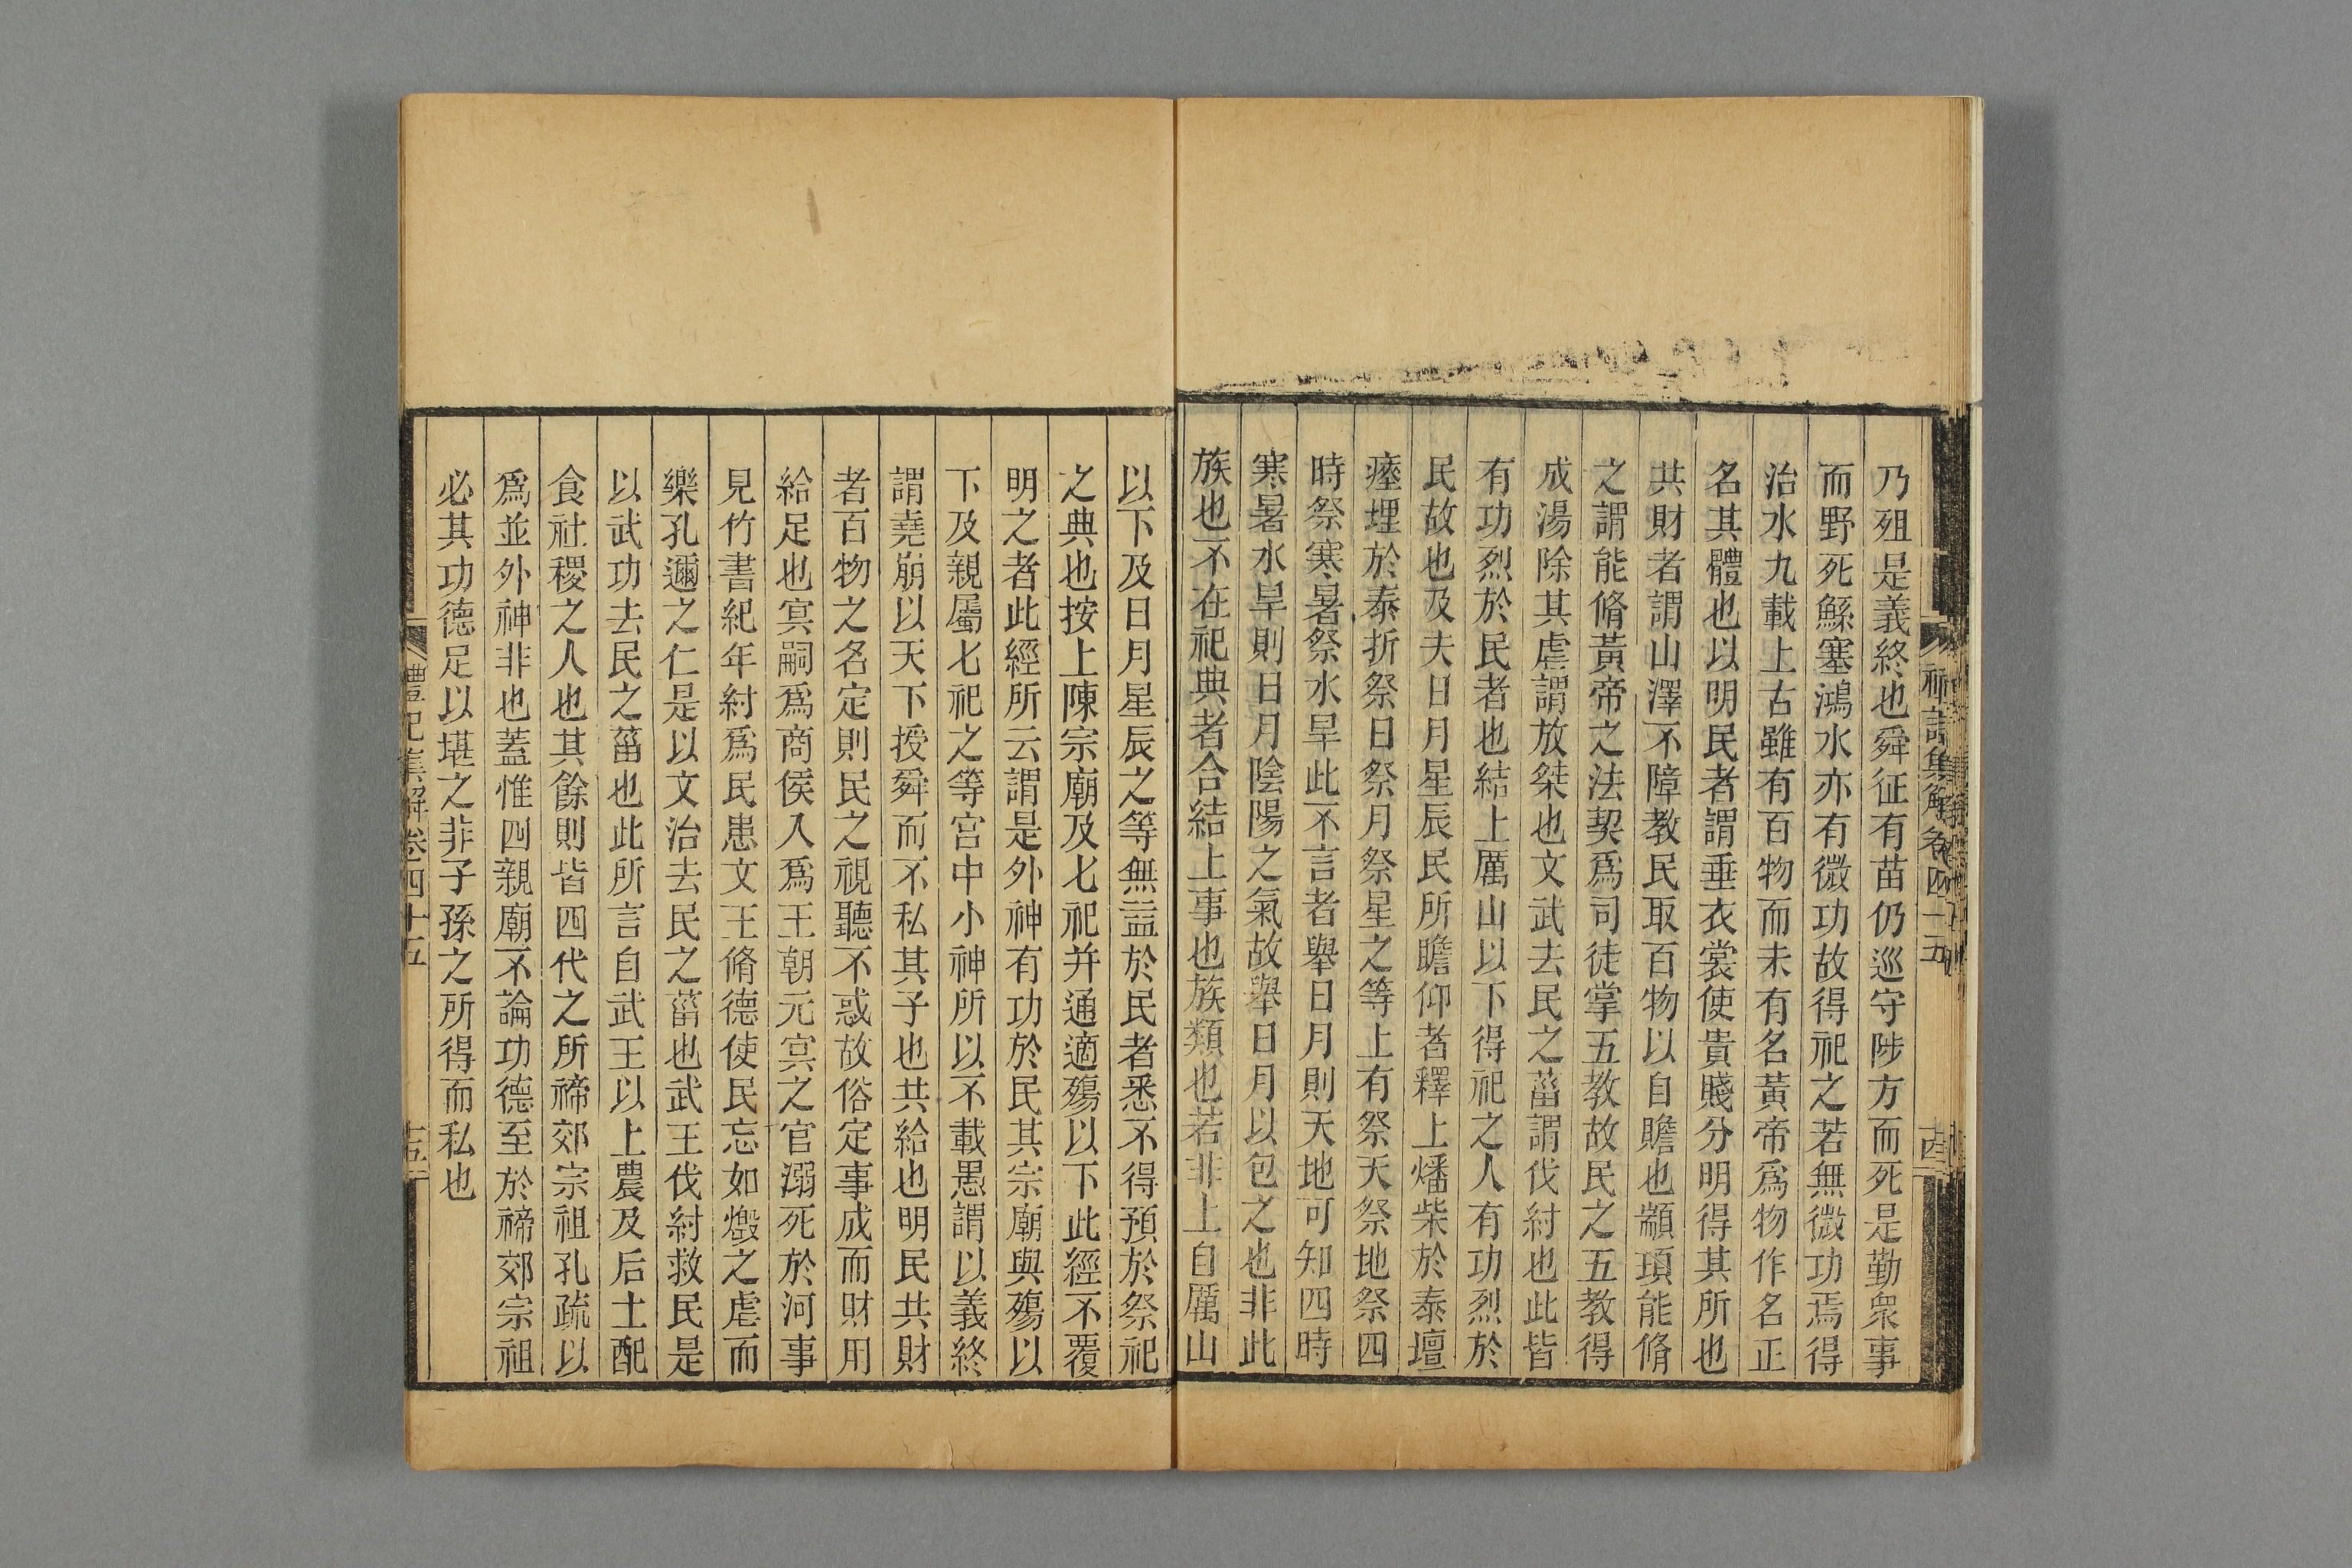 乃殂是義終也舜征有苗仍巡守陟方而死是勤衆事
而野死鯀塞鴻水亦有微功故得祀之若無微功焉得
治水九載上古雖有百物而未有名黃帝爲物作名正
名其體也以明民者謂垂衣裳使貴賤分明得其所也
共財者謂山澤不障教民取百物以自贍也顓頊能脩
之謂能脩黃帝之法契爲司徒掌五教故民之五教得
成湯除其虐謂放桀也文武去民之菑謂伐紂也此皆
有功烈於民者也結上厲山以下得祀之人有功烈於
民故也及夫日月星辰民所瞻仰者釋上燔柴於泰壇
瘞埋於泰折祭日祭月祭星之等上有祭天祭地祭四
時祭寒暑祭水旱此不言者舉日月則天地可知四時
寒暑水旱則日月陰陽之氣故舉日月以包之也非此
族也不在祀典者合結上事也族類也若非上自厲山
以下及日月星辰之等無益於民者悉不得預於祭祀
之典也按上陳宗廟及七祀并通適殤以下此經不覆
明之者此經所云謂是外神有功於民其宗廟與殤以
下及親屬七祀之等宮中小神所以不載愚謂以義終
謂堯崩以天下授舜而不私其子也共給也明民共財
者百物之名定則民之視聽不惑故俗定事成而財用
給足也冥嗣爲商侯入爲王朝元冥之官溺死於河事
見竹書紀年紂爲民患文王脩德使民忘如燬之虐而
樂孔邇之仁是以文治去民之菑也武王伐紂救民是
以武功去民之菑也此所言自武王以上農及后土配
食社稷之人也其餘則皆四代之所禘郊宗祖孔疏以
爲並外神非也蓋惟四親廟不論功德至於禘郊宗祖
必其功德足以堪之非子孫之所得而私也
禮記集解卷四十五
十五